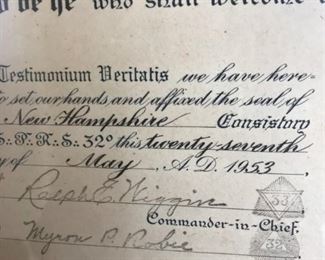 o be he who shall welcome
Testimonium Veritatis we have here-
to set our hands and affixed the seal of
New Hampshire Consistory
S∴P∴R∴S∴ 32° this twenty-seventh
y of May A.D. 1953
Ralph E. Wiggin
33
Commander-in-Chief.
Myron P. Robie
32